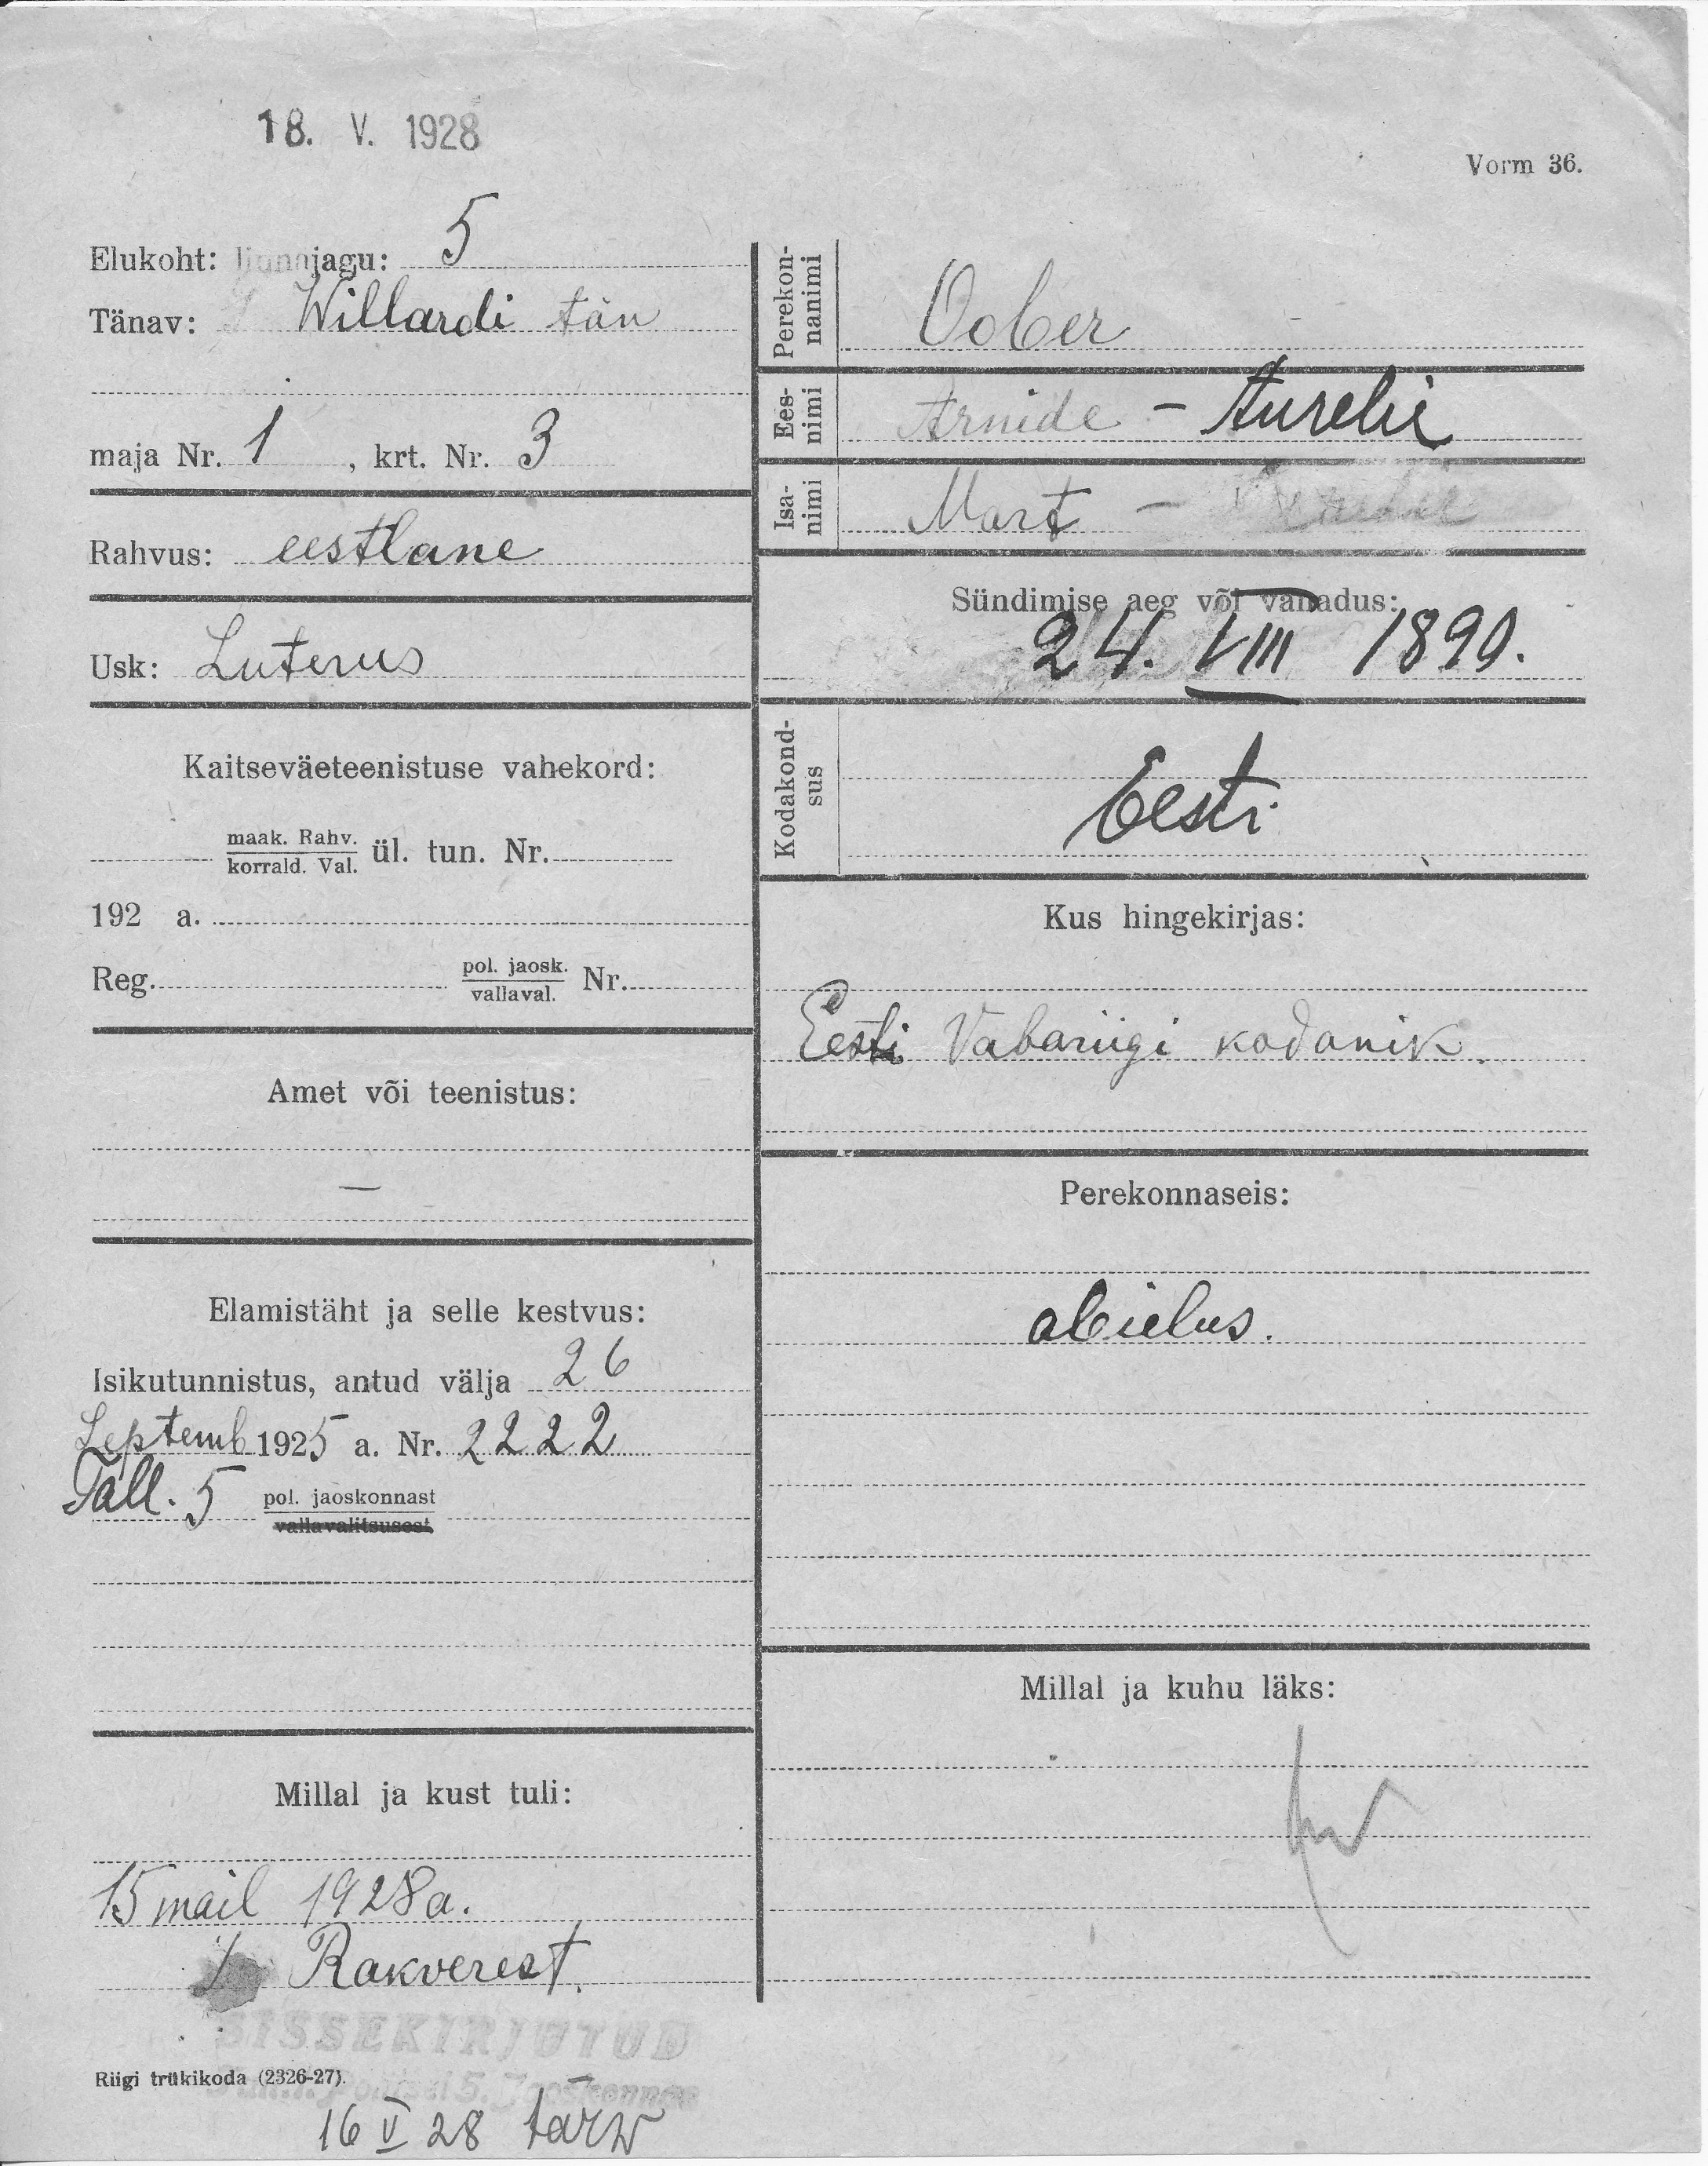 18. V. 1928
Vorm 36.
Elukoht: linnajagu: 5
Tänav: Willardi tän
maja Nr. 1, krt. Nr. 3
Rahvus: eestlane
Usk: Luterus
Kaitseväeteenistuse vahekord:
maak. Rahv.
korrald. Val. ül. tun. Nr.
192 a.
Reg. pol. jaosk. Nr.
vallaval.
Amet või teenistus:
—
Elamistäht ja selle kestvus:
Isikutunnistus, antud välja 26
Septemb 1925 a. Nr. 2222
Tall. 5 pol. jaoskonnast
vallavalitsusest
Millal ja kust tuli:
15 mail 1928 a.
Rakverest.
SISSEKIRJUTUD
Riigi trükikoda (2326-27).
Politsei 5. Jaoskonnas
16 V 28
Perekon-
nanimi
Oober
Ees-
nimi
Armide - Aurelie
Isa-
nimi
Mart -
Sündimise aeg või vanadus:
24. VIII 1899.
Kodakond-
sus
Eesti
Kus hingekirjas:
Eesti Vabariigi kodanik.
Perekonnaseis:
abielus.
Millal ja kuhu läks: